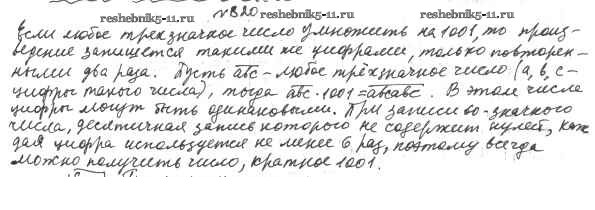 №820
reshebnik5-11.ru reshebnik5-11.ru
Если любое трехзначное число умножить на 1001, то произ-
ведение запишется такими же цифрами, только повторен-
ными два раза. Пусть abc - любое трёхзначное число (a, b, c -
цифры такого числа), тогда abc · 1001 = abcabc. В этом числе
цифры могут быть одинаковыми. При записи 60-значного
числа, десятичная запись которого не содержит нулей, каж
дая цифра используется не менее 6 раз, поэтому всегда
можно получить число, кратное 1001.
reshebnik5-11.ru reshebnik5-11.ru